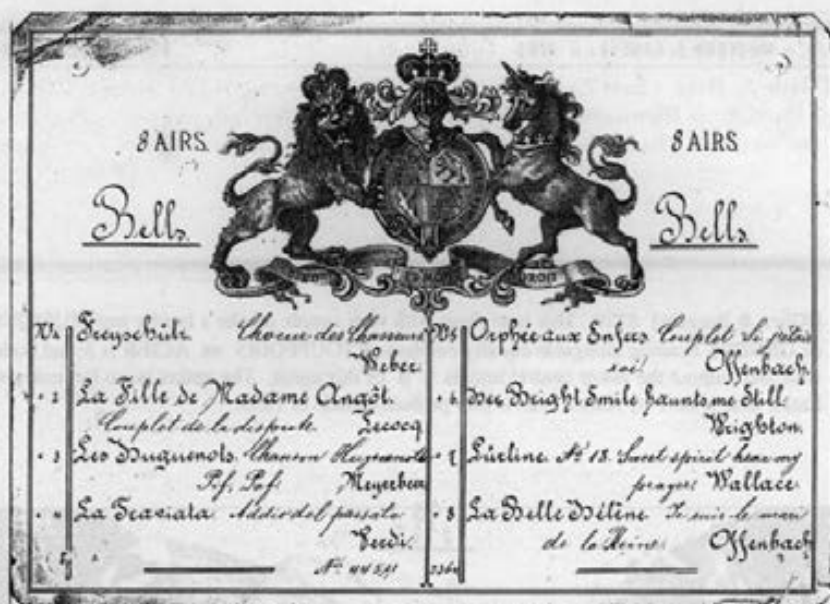 8 AIRS. 8 AIRS
Bells. Bells.
DROIT
Nº 1 Freyschütz Choeur des Chasseurs
Weber
" 2 La Fille de Madame Angôt.
Couplet de la dispute. Lecocq
" 3 Les Huguenots. Chanson Huguenote
Pif, Paf. Meyerbeer
" 4 La Traviata. Addio del passato
Verdi.
Nº 5 Orphée aux Enfers. Couplet
Offenbach.
" 6 Her Bright Smile haunts me Still
Wrighton.
" 7 Lürline. Nº 18. Sweet spirit hear my
prayer Wallace.
" 8 La Belle Hélène Je suis le mari
de la Reine. Offenbach
Nº